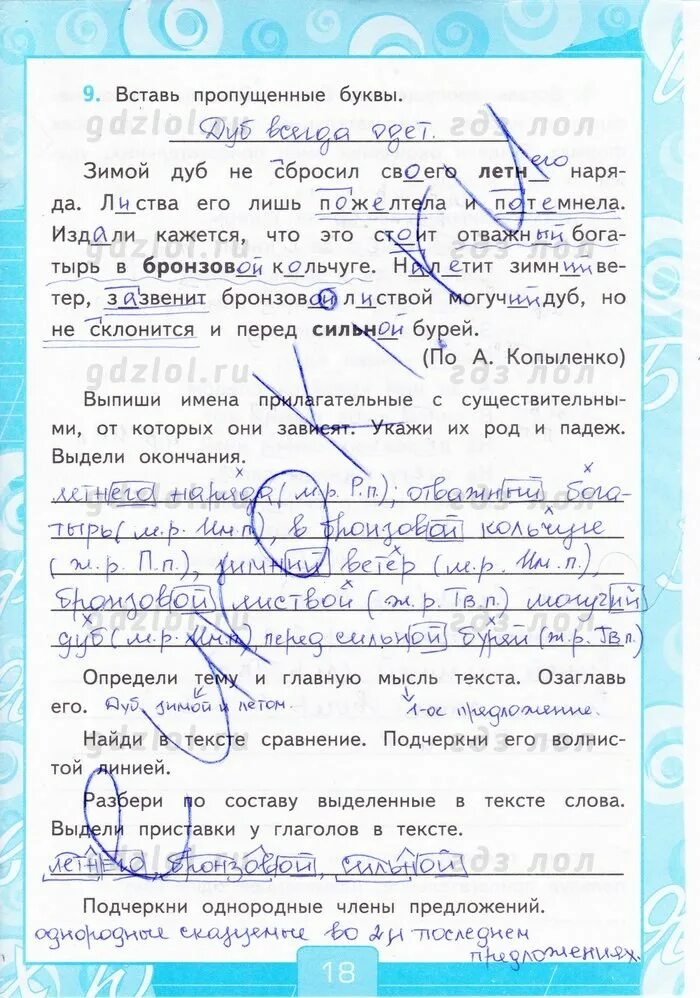 9. Вставь пропущенные буквы.
Дуб всегда одет.
Зимой дуб не сбросил своего летнего наря-
да. Листва его лишь пожелтела и потемнела.
Издали кажется, что это стоит отважный бога-
тырь в бронзовой кольчуге. Налетит зимний ве-
тер, зазвенит бронзовой листвой могучий дуб, но
не склонится и перед сильной бурей.
(По А. Копыленко)
gdzlol.ru гдз лол
Выпиши имена прилагательные с существительны-
ми, от которых они зависят. Укажи их род и падеж.
Выдели окончания.
летнего наряда (м.р. Р.п.), отважный бога-
тырь (м.р. Им.п), в бронзовой кольчуге
(ж.р. П.п.), зимний ветер (м.р. Им.п.),
бронзовой листвой (ж.р. Тв.п.) могучий
дуб (м.р. Им.п) перед сильной бурей (ж.р. Тв.п.)
Определи тему и главную мысль текста. Озаглавь
его. Дуб зимой и летом. 1-ое предложение.
Найди в тексте сравнение. Подчеркни его волнис-
той линией.
Разбери по составу выделенные в тексте слова.
Выдели приставки у глаголов в тексте.
летнего, бронзовой, сильной
Подчеркни однородные члены предложений.
однородные сказуемые во 2 и последнем
предложениях.
18